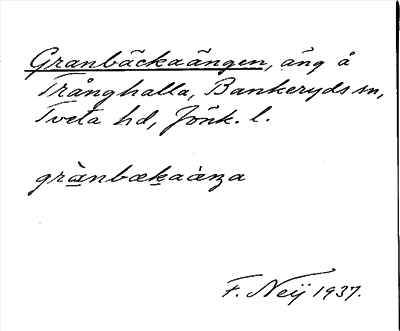 Granbäckaängen, äng å
Trånghalla, Bankeryds sn,
Tveta hd, Jönk. l.
grànbækaáŋa
F. Neij 1937.